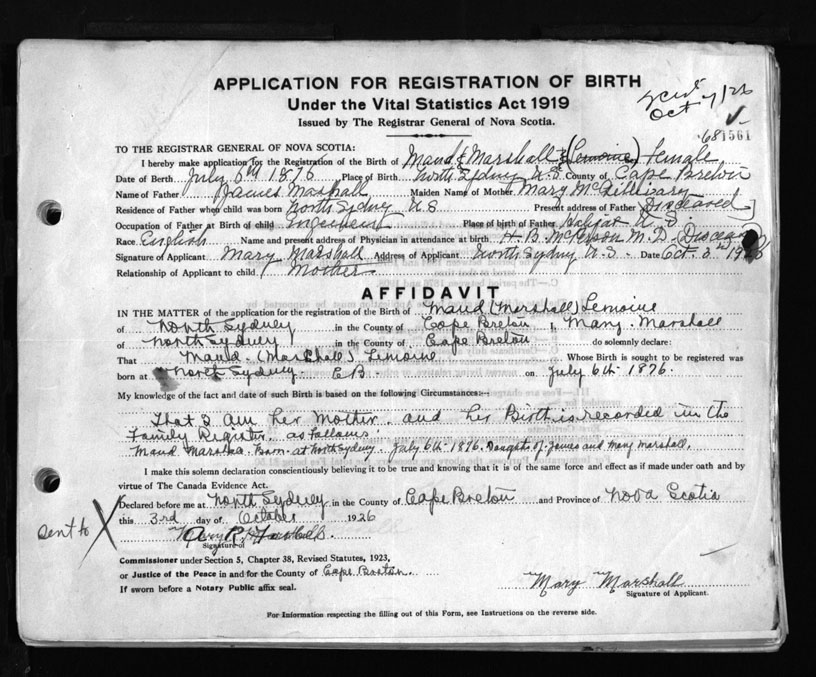 APPLICATION FOR REGISTRATION OF BIRTH
Under the Vital Statistics Act 1919
Issued by The Registrar General of Nova Scotia.
Oct 7/26
681561
TO THE REGISTRAR GENERAL OF NOVA SCOTIA:
I hereby make application for the Registration of the Birth of Maud Marshall (Lemoine) female
Date of Birth July 6th 1876 Place of Birth North Sydney N.S. County of Cape Breton
Name of Father James Marshall Maiden Name of Mother Mary McGillivary
Residence of Father when child was born North Sydney N S Present address of Father Deceased
Occupation of Father at Birth of child Place of birth of Father Halifax N. S.
Race English Name and present address of Physician in attendance at birth H B M. D.
Signature of Applicant Mary Marshall Address of Applicant North Sydney N.S. Date Oct. 3rd 1926
Relationship of Applicant to child Mother
AFFIDAVIT
IN THE MATTER of the application for the registration of Birth of Maud (Marshall) Lemoine
of North Sydney in the County of Cape Breton I, Mary Marshall
of North Sydney in the County of Cape Breton do solemnly declare:
That Maud (Marshall) Lemoine Whose Birth is sought to be registered was
born at North Sydney C B on July 6th 1876.
My knowledge of the fact and date of such Birth is based on the following Circumstances:—
That I am her Mother and her Birth is recorded in the
Family Register as follows
Maud Born at North Sydney July 6th 1876. of James and Mary Marshall.
I make this solemn declaration conscientiously believing it to be true and knowing that it is of the same force and effect as if made under oath and by
virtue of The Canada Evidence Act.
Declared before me at North Sydney in the County of Cape Breton and Province of Nova Scotia
this 3rd day of October 1926
sent to X
Signature of
Commissioner under Section 5, Chapter 38, Revised Statutes, 1923,
or Justice of the Peace in and for the County of Cape Breton
If sworn before a Notary Public affix seal.
Mary Marshall
Signature of Applicant.
For Information respecting the filling out of this Form, see Instructions on the reverse side.